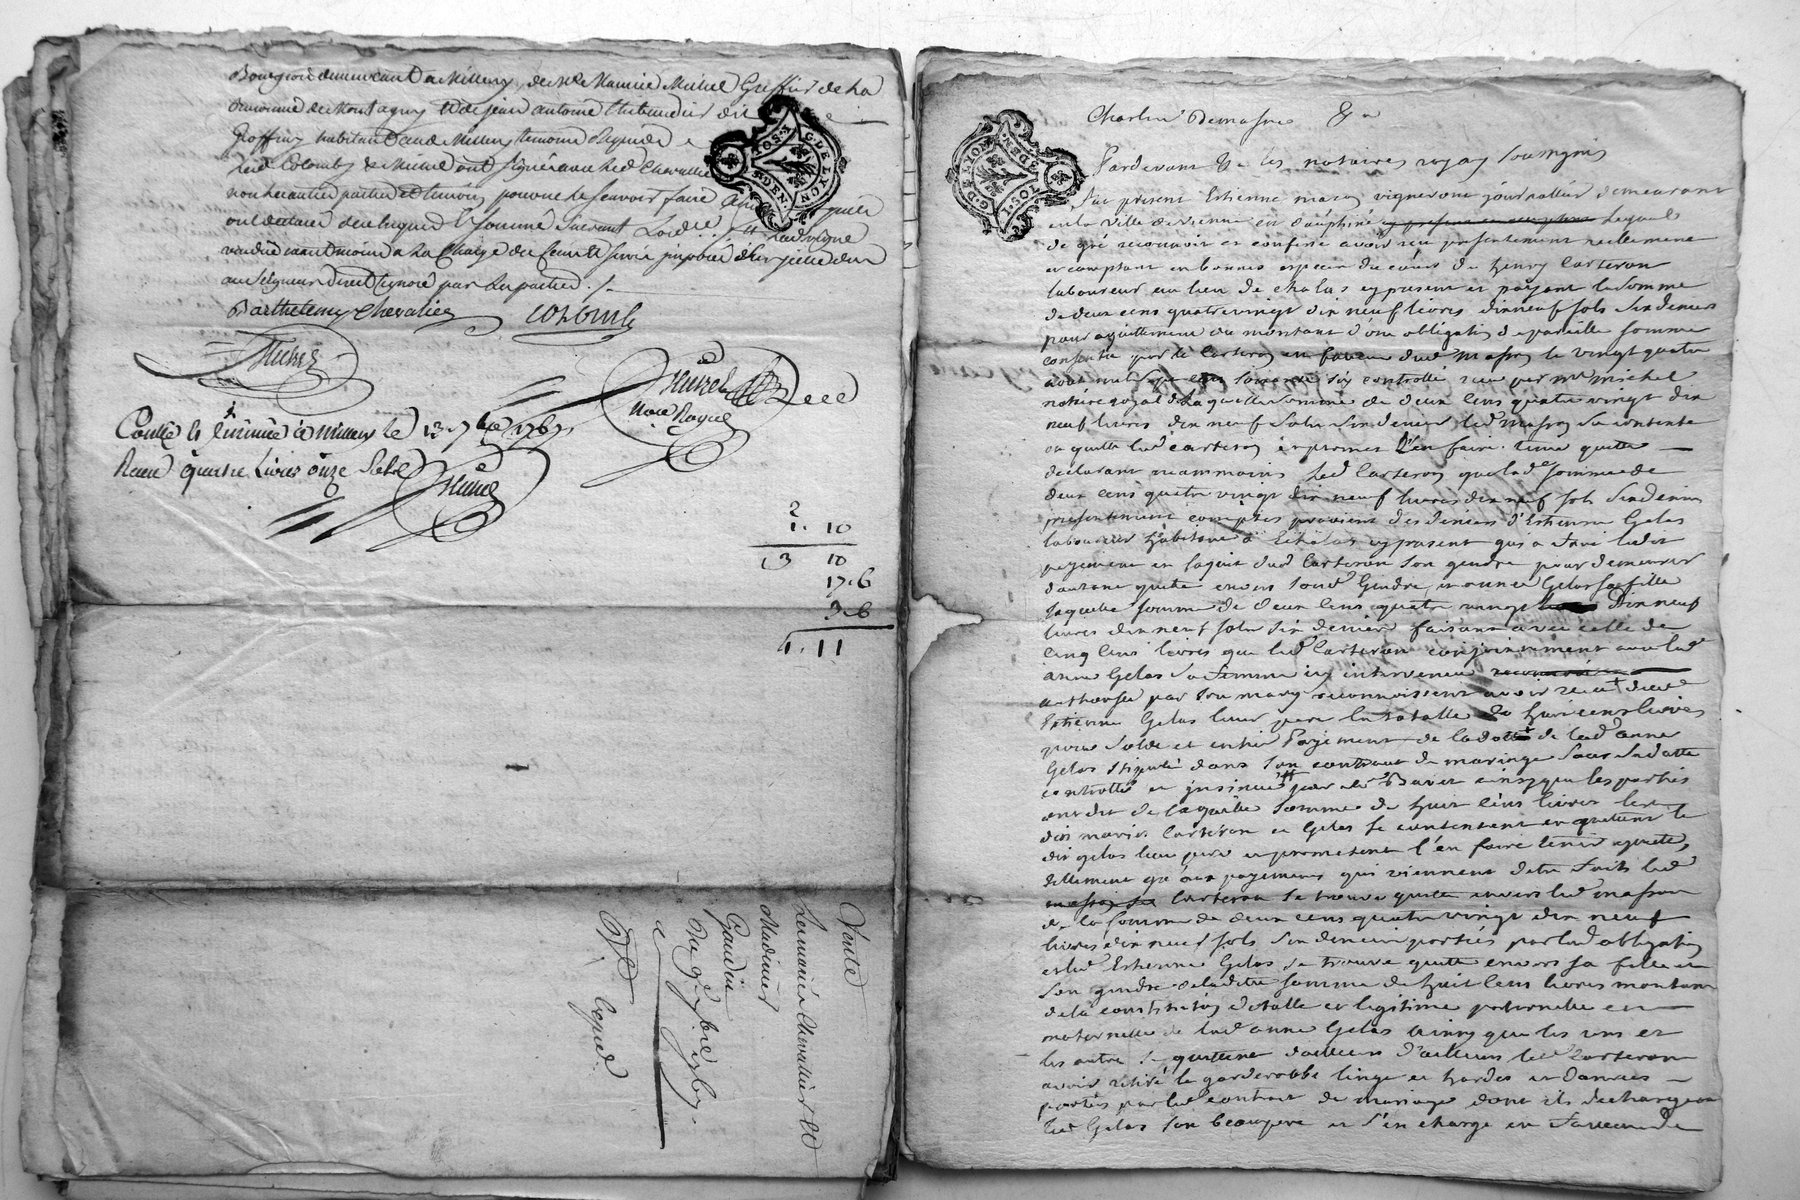 Bourgeois demeurant a Millery, de Me Maurice Michel Greffier de la
de Montagny et de jean antoine dit
habitant aud Millery temoins Requis e
Led Colomb & Michel ont signé avec led Chevallier
non les autres parties et temoins pour ne le scavoir faire
ont declaré de ce enquis et sommé suivant Lord.ce Lad vigne
vendue neantmoins a la Charge du Cens et servis imposé d'icelle du
au seigneur direct ignoré par les parties ./.
Barthelemy Chevalier Colomb
Michel
Michel
Nore Royal
Conllé et insinué a Millery le 13e 7bre 1767
Receu quatre Livres onze Sols
Michel
2
1. 10
3 10
17. 6
3. 6
4. 11
Vente
Chevallier
Madinier
Gaudin
Du 9e 7bre 1767
Exped
G.LE LYON
SOLS DEN.
G.DE LYON
SOLS DEN.
Pardevant les notaires royaux soussignés
fut present Estienne masson vigneron journallier demeurant
en la ville de vienne en dauphiné Lequel
de gré reconnoit et confesse avoir reçu presentement reellement
et comptant en bonnes especes du cours de henry Carteron
laboureur au lieu de chalas cy present et payant la somme
de deux cens quatre vingt dix neuf livres dix neuf sols six deniers
pour aquittement du montant d'une obligation de pareille somme
consentie par le Carteron en faveur dud masson le vingt quatre
aout mil sept cens soixante six controllé reçu par me michel
notaire royal de laquelle somme de deux cens quatre vingt dix
neuf livres dix neuf sols six deniers led masson se contente
en quitte led Carteron et promet l'en faire tenir quitte
declarant neanmoins led Carteron que lad somme de
deux cens quatre vingt dix neuf livres dix neuf sols six deniers
presentement comptés provient des deniers d'Estienne Gelas
laboureur habitant a Echalas cy present qui a fait led
payement en l'aquit dud Carteron son gendre pour demeurer
d'autant quitte envers soud Gendre et anne Gelas sa fille
laquelle somme de deux cens quatre vingt dix neuf
livres dix neuf sols six deniers faisant avec celle de
cinq cens livres que led Carteron conjointement avec lad
anne Gelas sa femme icy intervenue
authorisée par son mary reconnoissent avoir reçu dud
Estienne Gelas leur pere la totalle de huit cens livres
pour solde et entier Payement de la dotte de lad anne
Gelas stipulé dans son contract de mariage sous sa datte
controllé et insinué par me ainsy que les parties
ont dit de laquelle somme de huit cens livres les
dits mariés Carteron et Gelas se contentent en quittent le
dit gelas leur pere et promettent l'en faire tenir quitte,
tellement qu'aux payemens qui viennent detre faits led
Carteron se trouve quitte envers led masson
de la somme de deux cens quatre vingt dix neuf
livres dix neuf sols six deniers portés par lad obligation
et led Estienne Gelas se trouve quitte envers sa fille et
son gendre de ladite somme de huit cens livres montant
de la constitution dotalle et legitime paternelle et
maternelle de lad anne Gelas ainsy que les uns et
les autres se quittent d'ailleurs led Carteron
avoir retiré la garderobbe linge et hardes et danrées
portés par led contract de mariage dont ils dechargent
led Gelas son beaupere et s'en charge en faveur de